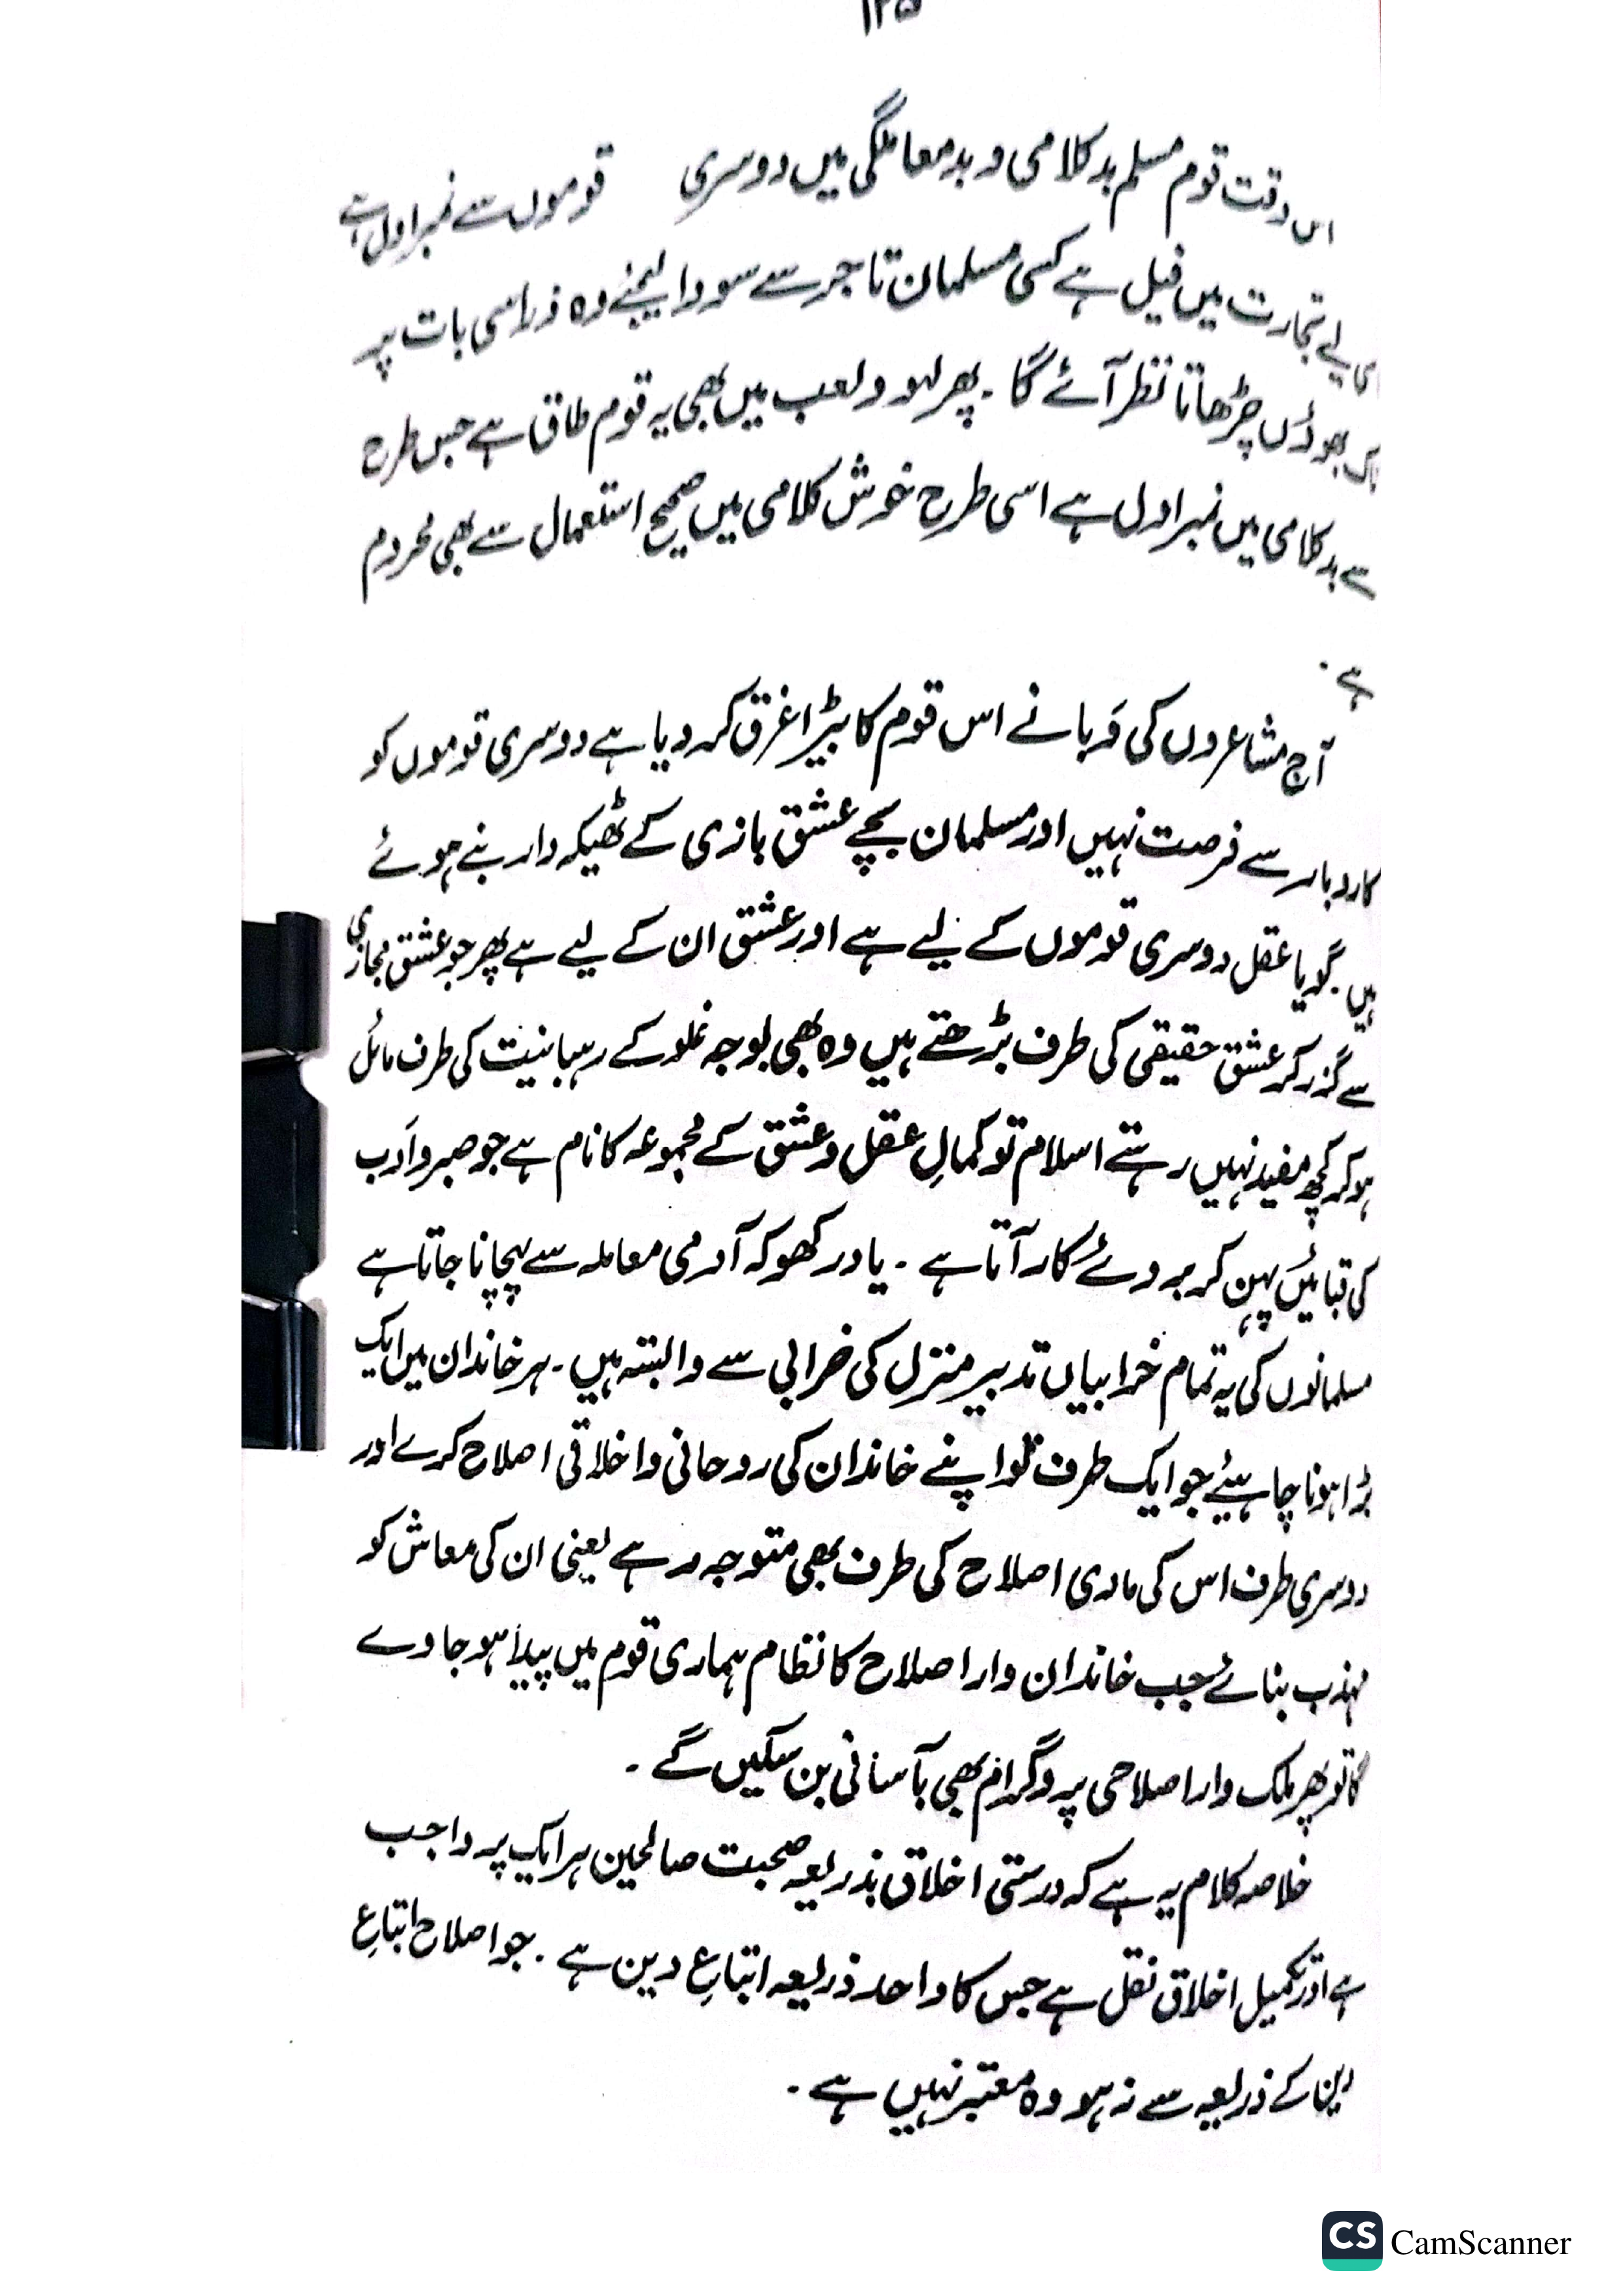 ۱۲۵
اس وقت قوم مسلم بدکلامی و بدمعاملگی میں دوسری قوموں سے نمبر اول ہے
اسی لیے تجارت میں فیل ہے کسی مسلمان تاجر سے سودا لیجئے وہ ذرا سی بات پر
ناک بھوئں چڑھاتا نظر آئے گا ۔ پھر لہو و لعب میں بھی یہ قوم طاق ہے جس طرح
سے بدکلامی میں نمبر اول ہے اسی طرح خوش کلامی میں صحیح استعمال سے بھی محروم
ہے ۔
آج مشاعروں کی وَبا نے اس قوم کا بیڑا غرق کر دیا ہے دوسری قوموں کو
کاروبار سے فرصت نہیں اور مسلمان بچے عشق بازی کے ٹھیکہ دار بنے ہوئے
ہیں ۔ گویا عقل دوسری قوموں کے لیے ہے اور عشق ان کے لیے ہے پھر جو عشق مجازی
سے گزر کر عشق حقیقی کی طرف بڑھتے ہیں وہ بھی بوجہ غلو کے رہبانیت کی طرف مائل
ہو کر کچھ مفید نہیں رہتے اسلام تو کمالِ عقل و عشق کے مجموعہ کا نام ہے جو صبر و اَدب
کی قبائیں پہن کر بروئے کار آتا ہے ۔ یاد رکھو کہ آدمی معاملہ سے پہچانا جاتا ہے
مسلمانوں کی یہ تمام خرابیاں تدبیر منزل کی خرابی سے وابستہ ہیں ۔ ہر خاندان میں ایک
بڑا ہونا چاہیئے جو ایک طرف تو اپنے خاندان کی روحانی و اخلاقی اصلاح کرے اور
دوسری طرف اس کی مادی اصلاح کی طرف بھی متوجہ رہے یعنی ان کی معاش کو
مہذب بنائے جب خاندان وار اصلاح کا نظام ہماری قوم میں پیدا ہو جاوے
گا تو پھر ملک وار اصلاحی پروگرام بھی بآسانی بن سکیں گے ۔
خلاصہ کلام یہ ہے کہ درستی اخلاق بذریعہ صحبت صالحین ہر ایک پر واجب
ہے اور تکمیل اخلاق نفل ہے جس کا واحد ذریعہ اتباعِ دین ہے ۔ جو اصلاح اتباعِ
دین کے ذریعہ سے نہ ہو وہ معتبر نہیں ہے ۔
CS CamScanner